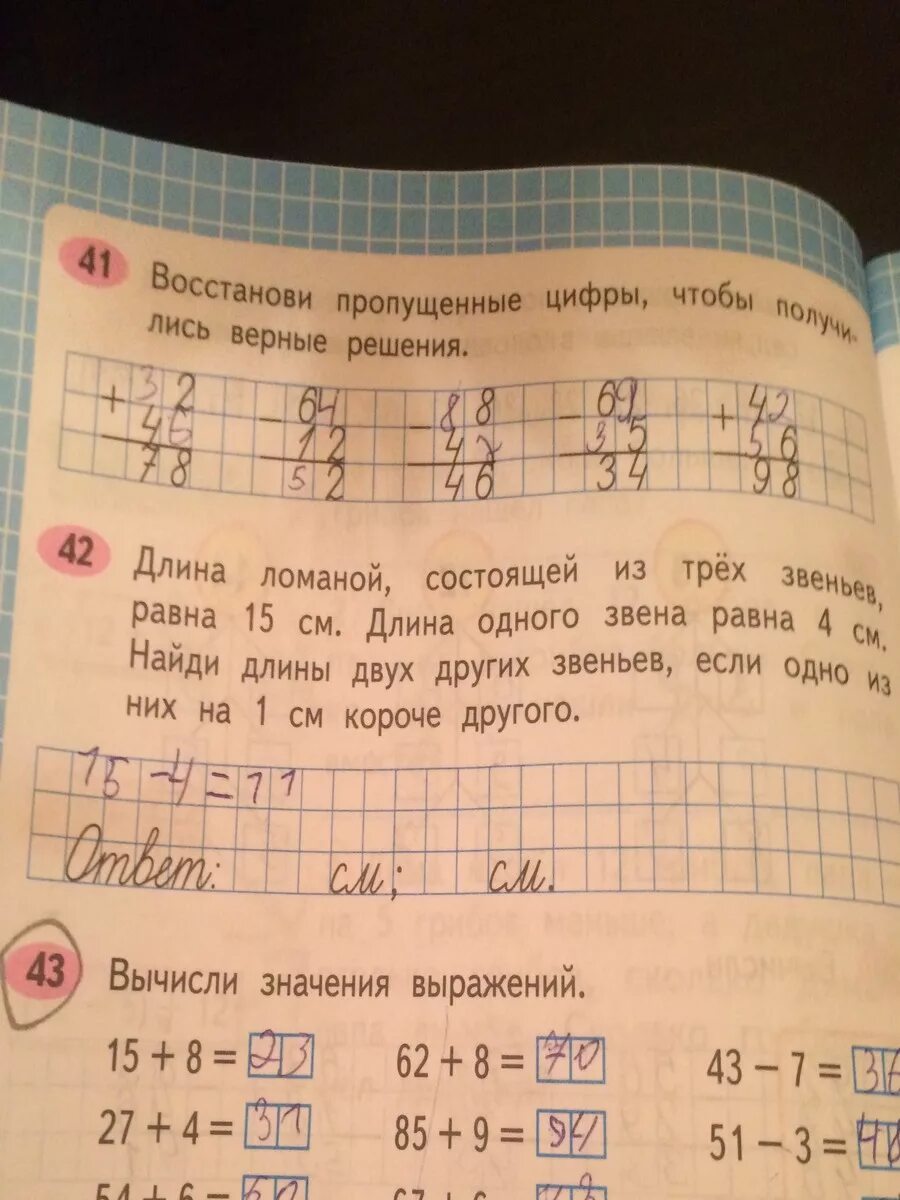 41 Восстанови пропущенные цифры, чтобы получи-
лись верные решения.
+ 32 − 64 − 88 − 69 + 42
46 12 42 35 56
78 52 46 34 98
42 Длина ломаной, состоящей из трёх звеньев,
равна 15 см. Длина одного звена равна 4 см.
Найди длины двух других звеньев, если одно из
них на 1 см короче другого.
15 − 4 = 11
Ответ: см; см.
43 Вычисли значения выражений.
15 + 8 = 23 62 + 8 = 70 43 − 7 = 36
27 + 4 = 31 85 + 9 = 94 51 − 3 = 48
54 + 6 = 60 67 + 6 =